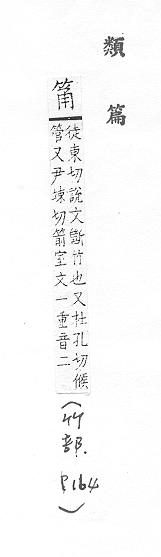 類篇
筩
徒東切說文斷竹也又杜孔切候
管又尹竦切箭室文一重音二
(竹部. P164)